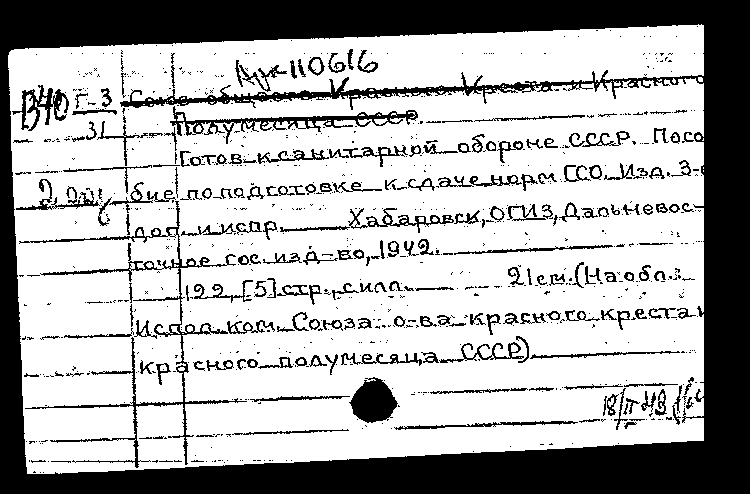 110616
В40 Г-3 Союз обществ Красного Креста и Красного
31 Полумесяца СССР.
Готов к санитарной обороне СССР. Посо
2 экз бие по подготовке к сдаче норм ГСО. Изд. 3-е
доп. и испр. Хабаровск, ОГИЗ, Дальневос-
точное гос. изд-во, 1942.
122, [5] стр., с илл. 21 см. (На обл.:
Испол. ком. Союза о-ва красного, креста и
красного полумесяца СССР)
18/II 43